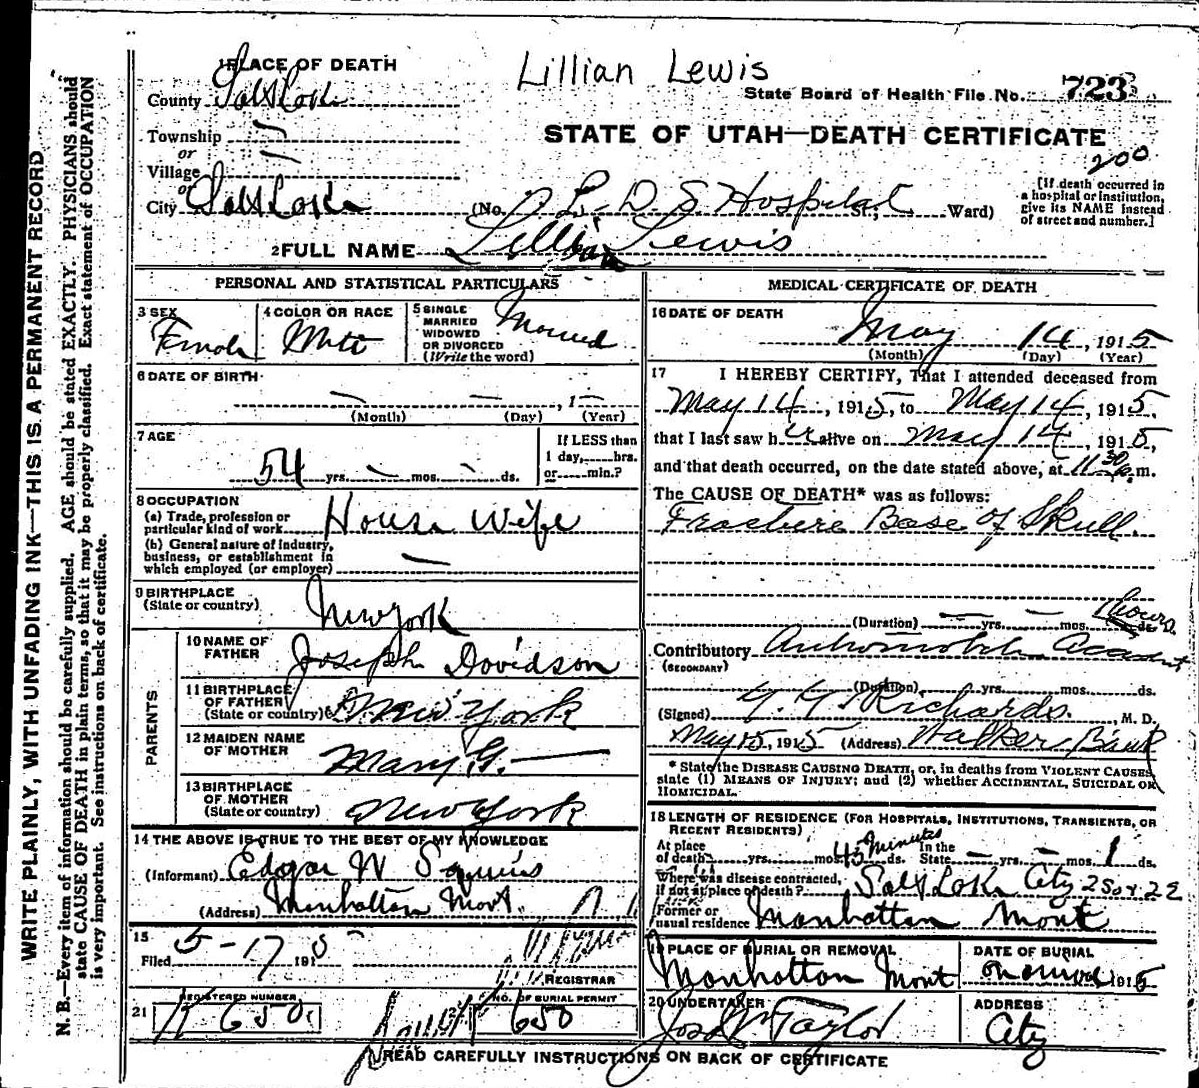 WRITE PLAINLY, WITH UNFADING INK—THIS IS A PERMANENT RECORD
N. B.—Every item of information should be carefully supplied. AGE should be stated EXACTLY. PHYSICIANS should
state CAUSE OF DEATH in plain terms, so that it may be properly classified. Exact statement of OCCUPATION
is very important. See instructions on back of certificate.
Lillian Lewis
1 PLACE OF DEATH
County Salt Lake
State Board of Health File No. 723
Township —
or
Village —
or
City Salt Lake
STATE OF UTAH—DEATH CERTIFICATE
200
(No. L. D. S Hospital St.; Ward)
[If death occurred in
a hospital or institution,
give its NAME instead
of street and number.]
2 FULL NAME Lillian Lewis
PERSONAL AND STATISTICAL PARTICULARS
3 SEX
Female
4 COLOR OR RACE
White
5 SINGLE
MARRIED
WIDOWED
OR DIVORCED
(Write the word)
Married
6 DATE OF BIRTH
— — , 1—
(Month) (Day) (Year)
7 AGE
54 yrs. — mos. — ds.
If LESS than
1 day, hrs.
or min.?
8 OCCUPATION
(a) Trade, profession or
particular kind of work House Wife
(b) General nature of industry,
business, or establishment in
which employed (or employer) —
9 BIRTHPLACE
(State or country) New York
PARENTS
10 NAME OF
FATHER Joseph Davidson
11 BIRTHPLACE
OF FATHER
(State or country) New York
12 MAIDEN NAME
OF MOTHER Mary G. —
13 BIRTHPLACE
OF MOTHER
(State or country) New York
14 THE ABOVE IS TRUE TO THE BEST OF MY KNOWLEDGE
(Informant) Edgar W Squires
(Address) Manhattan Mont.
15
Filed 5-17 1915
REGISTRAR
21 REGISTERED NUMBER
650
22 NO. OF BURIAL PERMIT
650
MEDICAL CERTIFICATE OF DEATH
16 DATE OF DEATH
May 14, 1915
(Month) (Day) (Year)
17 I HEREBY CERTIFY, That I attended deceased from
May 14, 1915, to May 14, 1915,
that I last saw her alive on May 14, 1915,
and that death occurred, on the date stated above, at 11 30 m.
The CAUSE OF DEATH* was as follows:
Fracture Base of Skull.
(Duration) — yrs. — mos. ds. hours
Contributory Automobile Accident
(SECONDARY)
(Duration) yrs. mos. ds.
(Signed) G. G. Richards. , M. D.
May 15, 1915 (Address) Walker Bank
* State the DISEASE CAUSING DEATH, or, in deaths from VIOLENT CAUSES,
state (1) MEANS OF INJURY; and (2) whether ACCIDENTAL, SUICIDAL OR
HOMICIDAL.
18 LENGTH OF RESIDENCE (FOR HOSPITALS, INSTITUTIONS, TRANSIENTS, OR
RECENT RESIDENTS)
At place
of death yrs. mos. 45 minutes ds. In the
State — yrs. — mos. 1 ds.
Where was disease contracted,
if not at place of death? Salt Lake City
Former or
usual residence Manhattan Mont
19 PLACE OF BURIAL OR REMOVAL
Manhattan Mont
DATE OF BURIAL
on arrival 1915
20 UNDERTAKER
Jos. Wm Taylor
ADDRESS
City
READ CAREFULLY INSTRUCTIONS ON BACK OF CERTIFICATE